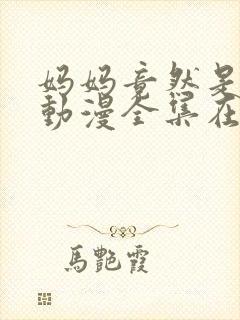 妈妈竟然是
動漫全集在
馬艷霞